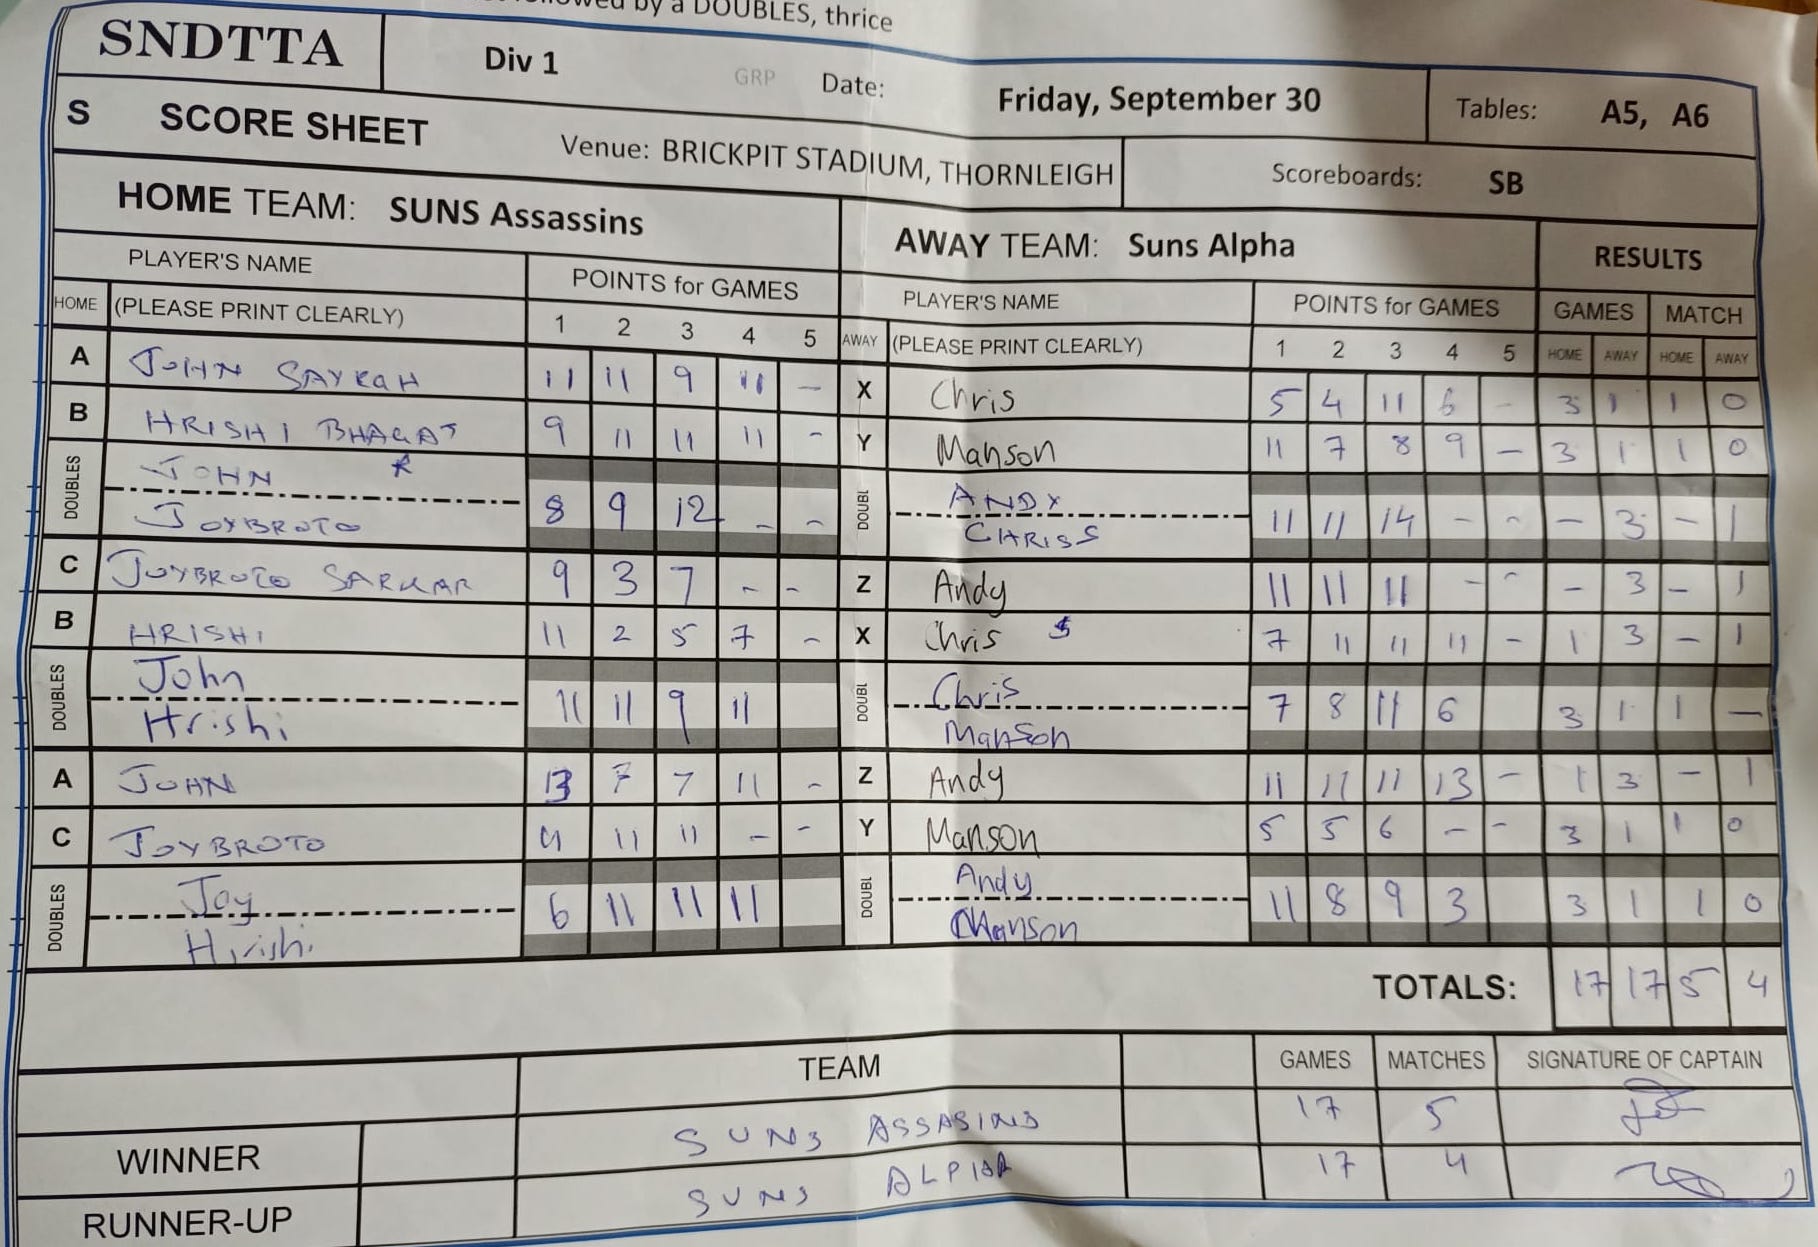 followed by a DOUBLES, thrice
SNDTTA Div 1 GRP Date: Friday, September 30 Tables: A5, A6
S SCORE SHEET Venue: BRICKPIT STADIUM, THORNLEIGH Scoreboards: SB
HOME TEAM: SUNS Assassins AWAY TEAM: Suns Alpha RESULTS
PLAYER'S NAME POINTS for GAMES PLAYER'S NAME POINTS for GAMES GAMES MATCH
HOME (PLEASE PRINT CLEARLY) 1 2 3 4 5 AWAY (PLEASE PRINT CLEARLY) 1 2 3 4 5 HOME AWAY HOME AWAY
A JOHN SAYKAH 11 11 9 11 - X Chris 5 4 11 6 - 3 1 1 0
B HRISHI BHAGAT 9 11 11 11 - Y Manson 11 7 8 9 - 3 1 1 0
DOUBLES JOHN DOUBL ANDY
JOYBROTO 8 9 12 - - CHRISS 11 11 14 - - - 3 - 1
C JOYBROTO SARKAR 9 3 7 - - Z Andy 11 11 11 - - - 3 - 1
B HRISHI 11 2 5 7 - X Chris S 7 11 11 11 - 1 3 - 1
DOUBLES John DOUBL Chris
Hrishi 11 11 9 11 Manson 7 8 11 6 3 1 1 -
A JOHN 13 7 7 11 - Z Andy 11 11 11 13 - 1 3 - 1
C JOYBROTO 11 11 - - Y Manson 5 5 6 - - 3 1 1 0
DOUBLES Joy DOUBL Andy
Hrishi 6 11 11 11 Manson 11 8 9 3 3 1 1 0
TOTALS: 17 17 5 4
TEAM GAMES MATCHES SIGNATURE OF CAPTAIN
WINNER SUNS ASSASINS 17 5
RUNNER-UP SUNS ALPHA 17 4